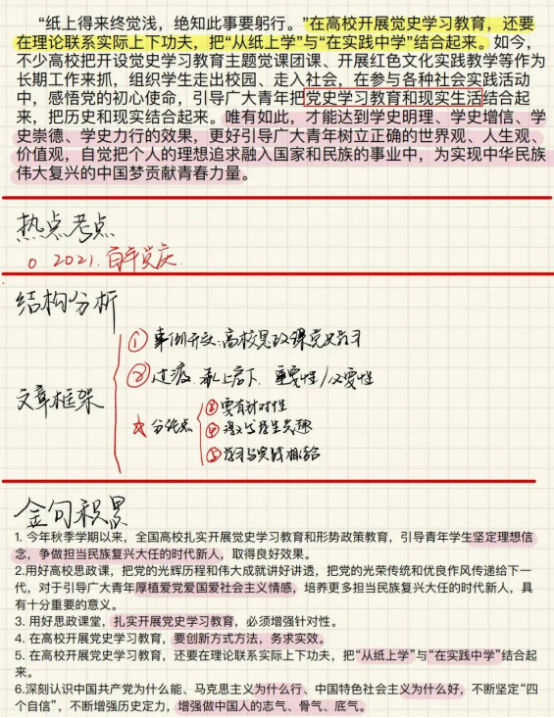 “纸上得来终觉浅，绝知此事要躬行。”在高校开展党史学习教育，还要
在理论联系实际上下功夫，把“从纸上学”与“在实践中学”结合起来。如今，
不少高校把开设党史学习教育主题党课团课、开展红色文化实践教学等作为
长期工作来抓，组织学生走出校园、走入社会，在参与各种社会实践活动
中，感悟党的初心使命，引导广大青年把党史学习教育和现实生活结合起
来，把历史和现实结合起来。唯有如此，才能达到学史明理、学史增信、学
史崇德、学史力行的效果，更好引导广大青年树立正确的世界观、人生观、
价值观，自觉把个人的理想追求融入国家和民族的事业中，为实现中华民族
伟大复兴的中国梦贡献青春力量。
热点考点
2021.百年党庆
结构分析
文章框架
①事例开文:高校思政课党史学习
②过渡.承上启下.重要性/必要性
☆分论点
③要有针对性
④激发学生兴趣
⑤学习与实践相结合
金句积累
1. 今年秋季学期以来，全国高校扎实开展党史学习教育和形势政策教育，引导青年学生坚定理想信
念，争做担当民族复兴大任的时代新人，取得良好效果。
2.用好高校思政课，把党的光辉历程和伟大成就讲好讲透，把党的光荣传统和优良作风传递给下一
代，对于引导广大青年厚植爱党爱国爱社会主义情感，培养更多担当民族复兴大任的时代新人，具
有十分重要的意义。
3. 用好思政课堂，扎实开展党史学习教育，必须增强针对性。
4. 在高校开展党史学习教育，要创新方式方法，务求实效。
5. 在高校开展党史学习教育，还要在理论联系实际上下功夫，把“从纸上学”与“在实践中学”结合起
来。
6.深刻认识中国共产党为什么能、马克思主义为什么行、中国特色社会主义为什么好，不断坚定“四
个自信”，不断增强历史定力，增强做中国人的志气、骨气、底气。